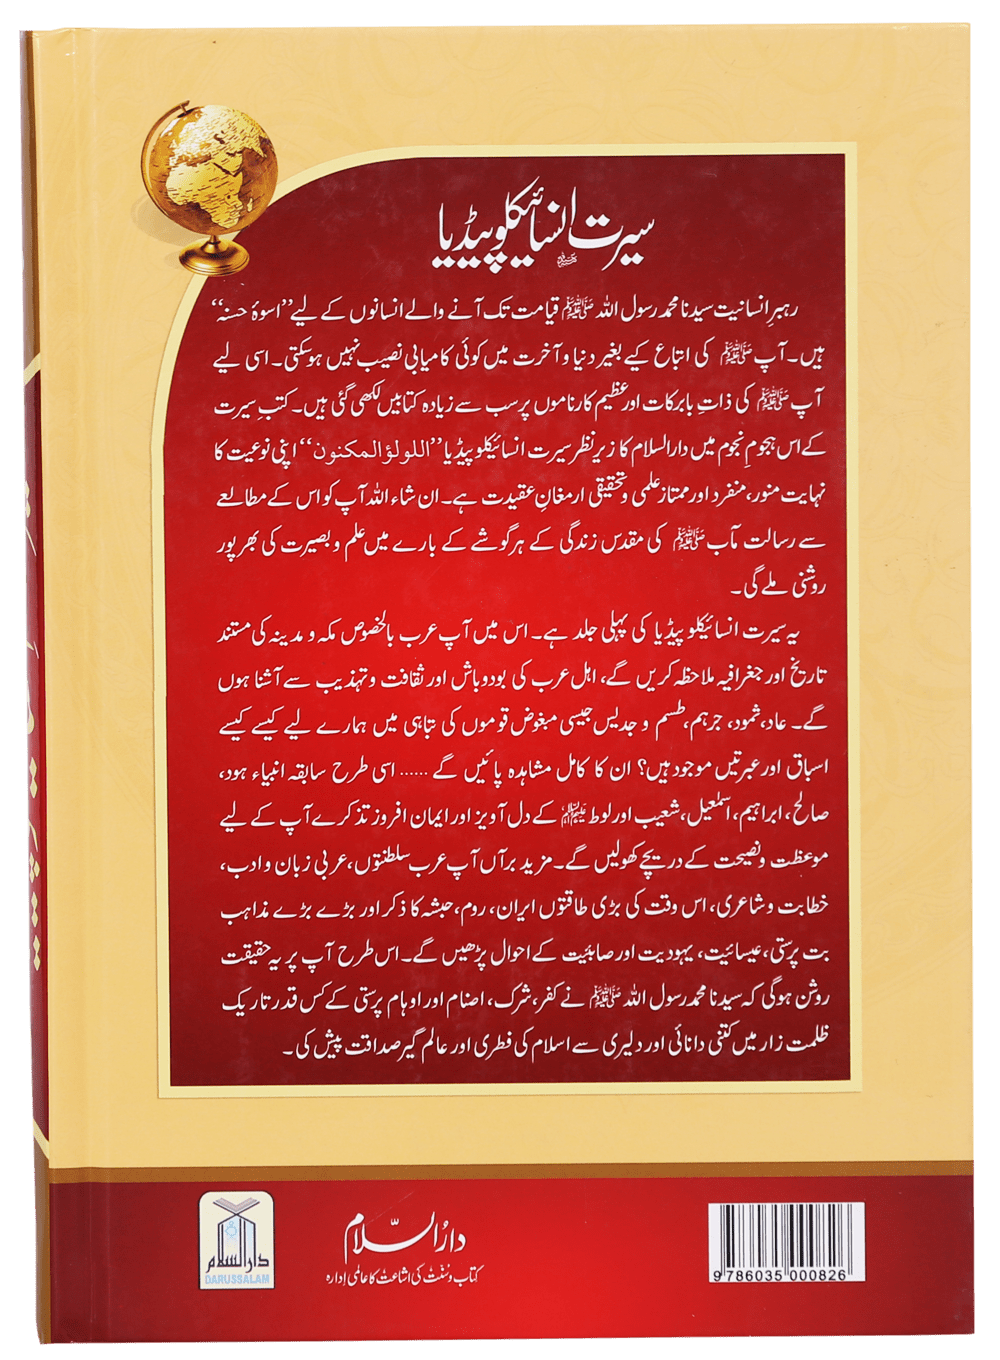 سیرت انسائیکلوپیڈیا
ﷺ
رہبرِ انسانیت سیدنا محمد رسول اللہ ﷺ قیامت تک آنے والے انسانوں کے لیے ”اسوۂ حسنہ“
ہیں۔ آپ ﷺ کی اتباع کیے بغیر دنیا و آخرت میں کوئی کامیابی نصیب نہیں ہوسکتی۔ اسی لیے
آپ ﷺ کی ذاتِ بابرکات اور عظیم کارناموں پر سب سے زیادہ کتابیں لکھی گئی ہیں۔ کتبِ سیرت
کے اس ہجومِ نجوم میں دارالسلام کا زیرِ نظر سیرت انسائیکلوپیڈیا ”اللولؤ المکنون“ اپنی نوعیت کا
نہایت منور، منفرد اور ممتاز علمی و تحقیقی ارمغانِ عقیدت ہے۔ ان شاء اللہ آپ کو اس کے مطالعے
سے رسالت مآب ﷺ کی مقدس زندگی کے ہر گوشے کے بارے میں علم و بصیرت کی بھرپور
روشنی ملے گی۔
یہ سیرت انسائیکلوپیڈیا کی پہلی جلد ہے۔ اس میں آپ عرب بالخصوص مکہ و مدینہ کی مستند
تاریخ اور جغرافیہ ملاحظہ کریں گے، اہل عرب کی بودوباش اور ثقافت و تہذیب سے آشنا ہوں
گے۔ عاد، ثمود، جرہم، طسم و جدیس جیسی مبغوض قوموں کی تباہی میں ہمارے لیے کیسے کیسے
اسباق اور عبرتیں موجود ہیں؟ ان کا کامل مشاہدہ پائیں گے ...... اسی طرح سابقہ انبیاء ہود،
صالح، ابراہیم، اسمٰعیل، شعیب اور لوط علیہم السلام کے دل آویز اور ایمان افروز تذکرے آپ کے لیے
موعظت و نصیحت کے دریچے کھولیں گے۔ مزید برآں آپ عرب سلطنتوں، عربی زبان و ادب،
خطابت و شاعری، اس وقت کی بڑی طاقتوں ایران، روم، حبشہ کا ذکر اور بڑے بڑے مذاہب
بت پرستی، عیسائیت، یہودیت اور صابئیت کے احوال پڑھیں گے۔ اس طرح آپ پر یہ حقیقت
روشن ہوگی کہ سیدنا محمد رسول اللہ ﷺ نے کفر، شرک، اصنام اور اوہام پرستی کے کس قدر تاریک
ظلمت زار میں کتنی دانائی اور دلیری سے اسلام کی فطری اور عالم گیر صداقت پیش کی۔
دارالسلام
DARUSSALAM
دارُالسّلام
کتاب و سنت کی اشاعت کا عالمی ادارہ
9 786035 000826